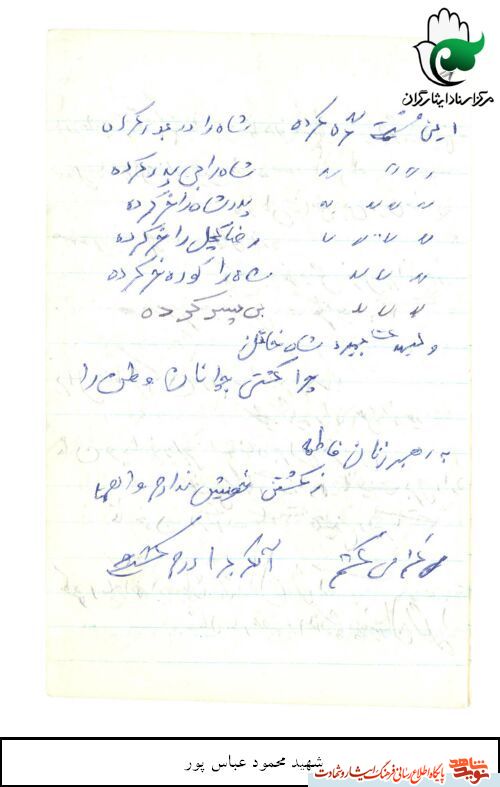 مرکز اسناد ایثارگران
این مشت گره کرده شاه را در بدر کرده
" " " شاه را بی پدر کرده
" " " " پدر شاه را خر کرده
" " " " رضا کچل را خر کرده
" " " شاه را کوره خر کرده
" " " بی پسر کرده
ولیعهدت بمیرد شاه خائن
چرا کشتی جوانان وطن را
به رهبر زنان فاطمه
ز کشتن خویش ندارم واهمه
می کشم آنکه برادرم کشت
شهید محمود عباس پور
نوید شاهد پایگاه اطلاع رسانی فرهنگ ایثار و شهادت